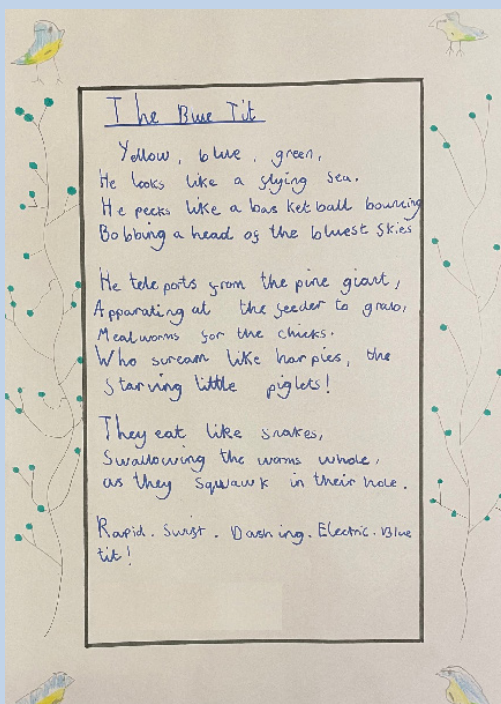 The Blue Tit
Yellow, blue, green,
He looks like a flying sea.
He pecks like a basketball bouncing
Bobbing a head of the bluest skies
He teleports from the pine giant,
Apparating at the feeder to grab,
Mealworms for the chicks.
Who scream like harpies, the
starving little piglets!
They eat like snakes,
Swallowing the worms whole,
as they squawk in their hole.
Rapid. Swift. Dashing. Electric. Blue
tit!